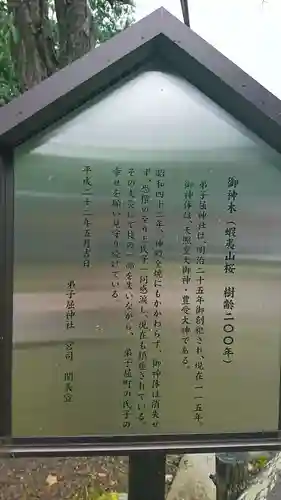 御神木（蝦夷山桜 樹齢二〇〇年）
弟子屈神社は、明治二十五年御創祀され、現在一一五年。
御神体は、天照皇大御神・豊受大神である。
昭和四十二年、神殿全焼にもかかわらず、御神体は消失せ
ず、恐懼の余り上氏子一同感激し、現在も
されている。
その支えとして枝の一部を集いながら、弟子屈町の氏子の
幸せを願い見守り続けている。
平成二十二年五月吉日
弟子屈神社 宮司